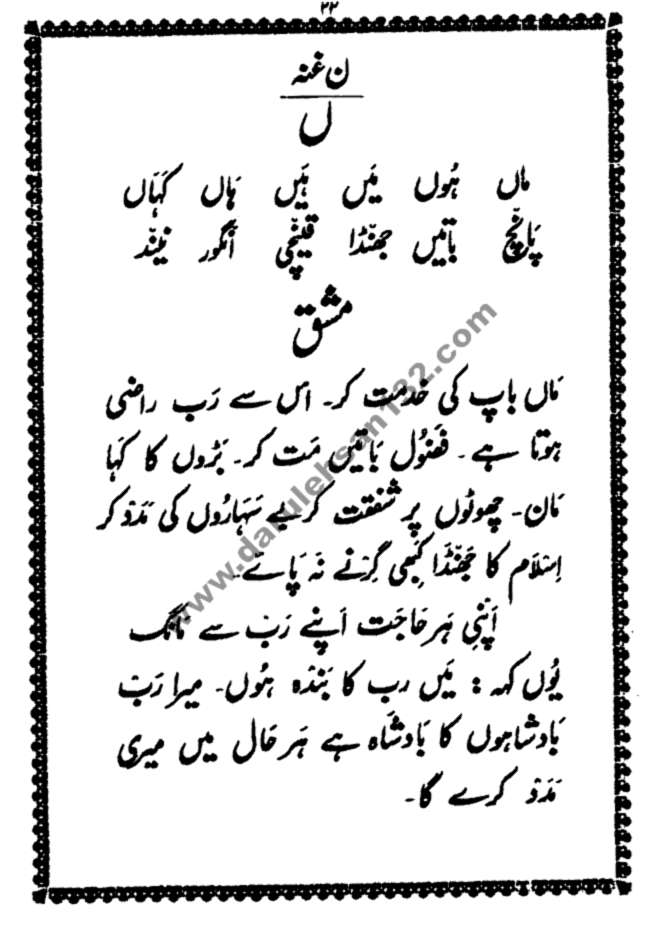 ۲۲
ن غنہ
ں
مَاں ہُوں مَیں ہَیں ہَاں کَہَاں
پَانچ بَاتیں جھَنڈا قَینچی اَنگور نیند
مشق
مَاں بَاپ کی خدمت کر۔ اس سے رَب راضی
ہوتا ہے۔ فَضُول بَاتیں مَت کر۔ بَڑوں کا کہَا
مَان۔ چھوٹوں پر شفقت کر بے سَہَاروں کی مَدَدْ کر
اِسْلَام کا جَھنْڈَا کَبھی گِرْنے نَہ پَائے۔
اَپْنِی ہَر حَاجَت اَپنے رَبْ سے مَانگ
یُوں کہہ : مَیں رب کا بَنْدہ ہُوں۔ میرا رَبْ
بَادشاہوں کا بَادشَاہ ہے ہَر حَال میں میری
مَدَدْ کرے گا۔
www.darulehsan132.com